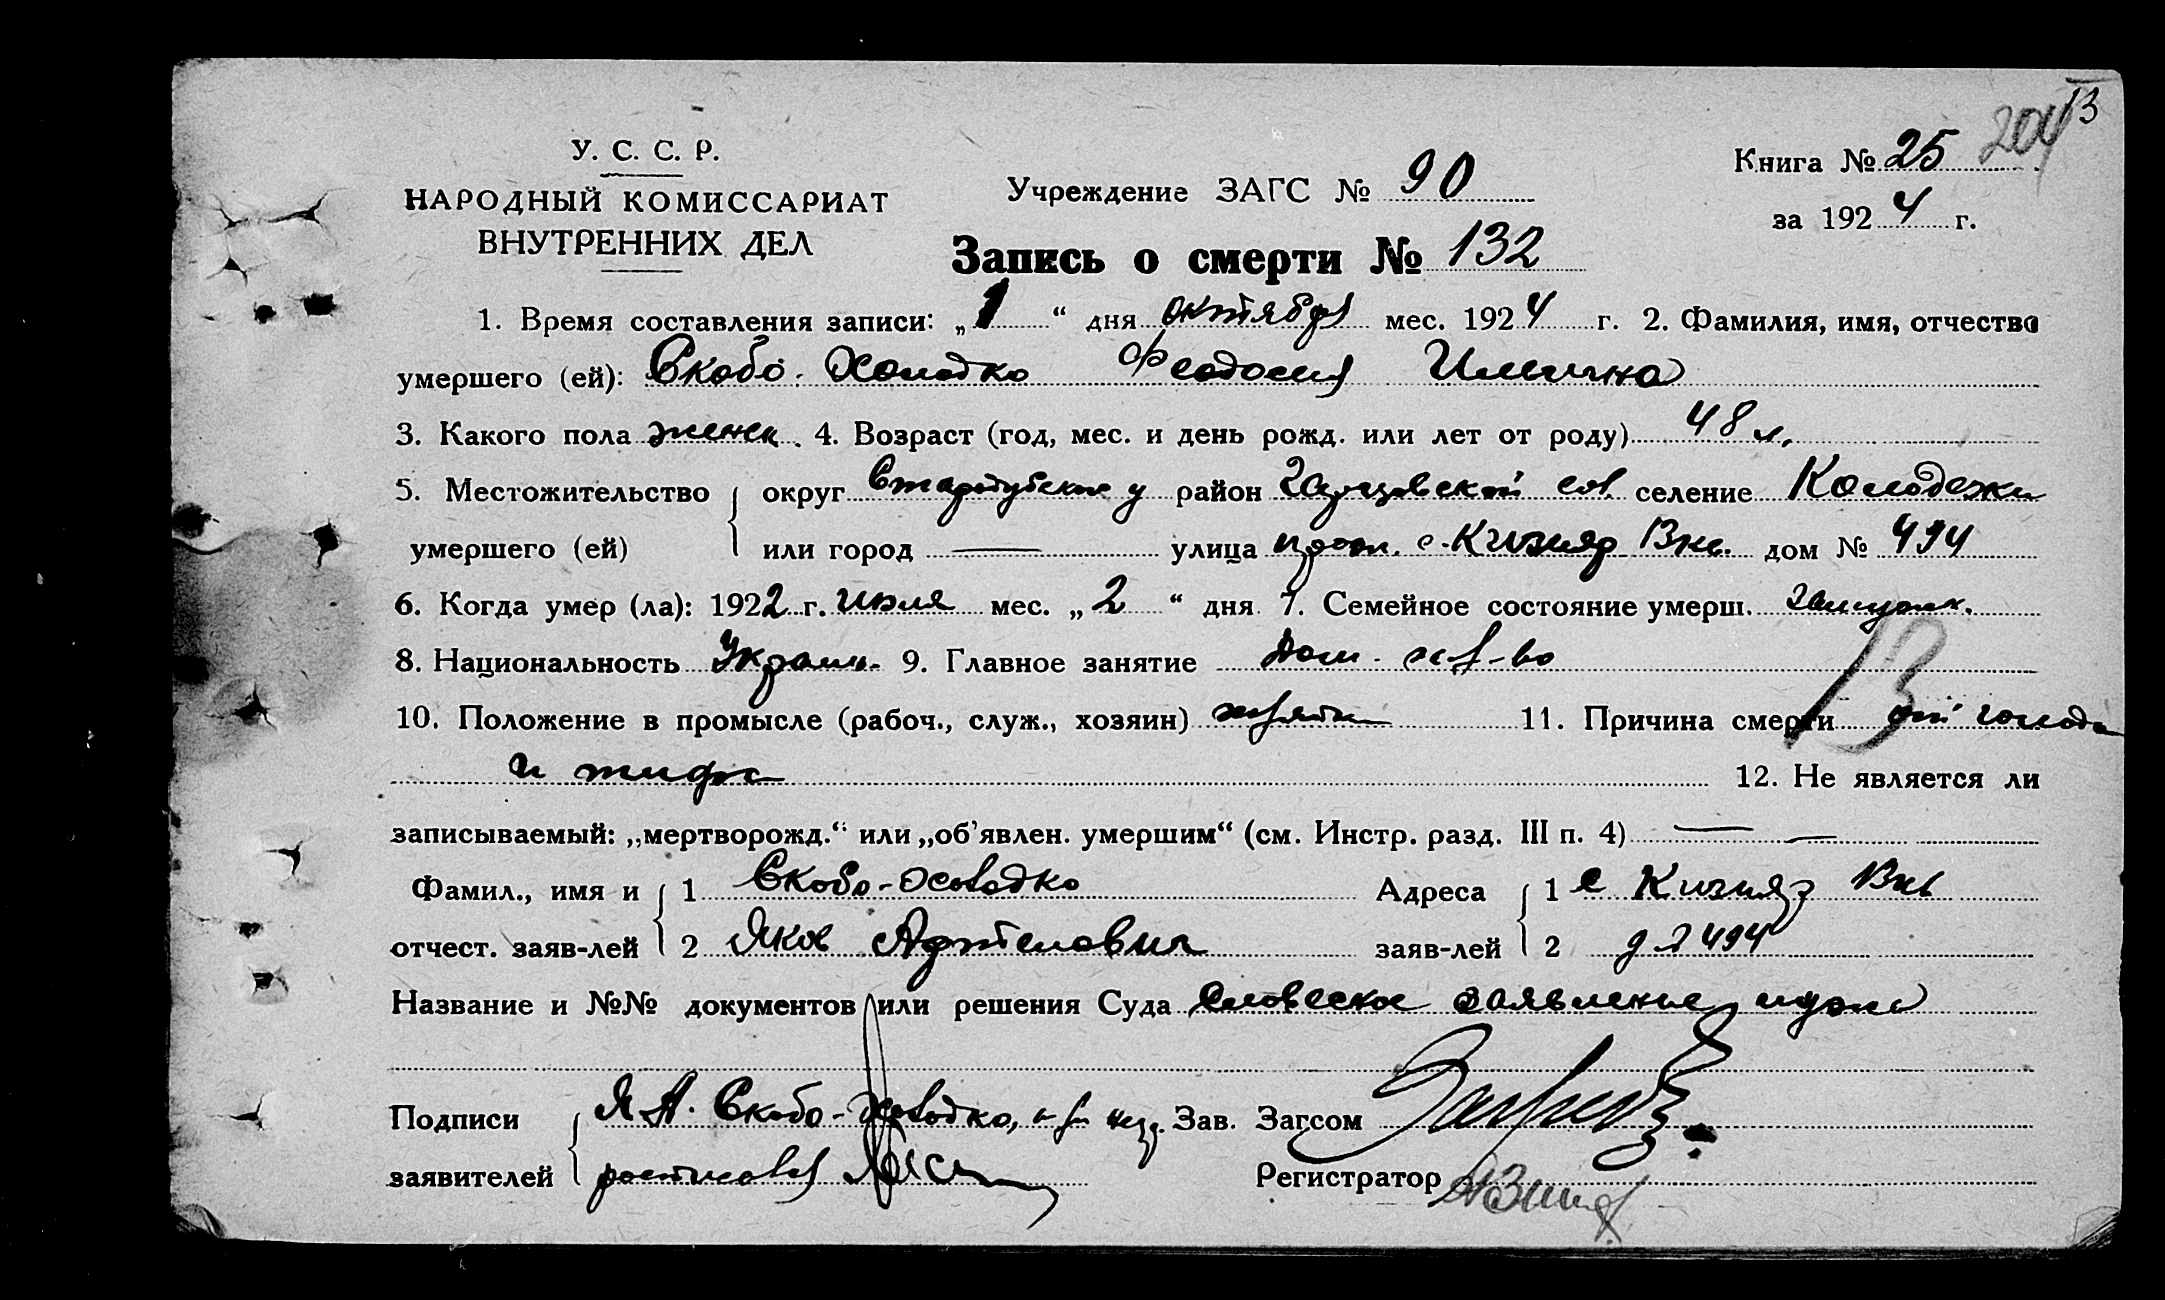 13
204
У. С. С. Р.
НАРОДНЫЙ КОМИССАРИАТ
ВНУТРЕННИХ ДЕЛ
Учреждение ЗАГС № 90
Книга № 25
за 1924 г.
Запись о смерти № 132
1. Время составления записи: „1“ дня октября мес. 1924 г. 2. Фамилия, имя, отчество
умершего (ей): Скобо-Холодко Феодосия Илична
3. Какого пола женск. 4. Возраст (год, мес. и день рожд. или лет от роду) 48 л.
5. Местожительство округ у район сов. селение Колодежки
умершего (ей) или город — улица с. Кизияр дом № 494
6. Когда умер (ла): 1922 г. июля мес. „2“ дня 7. Семейное состояние умерш. замужн.
8. Национальность Украин. 9. Главное занятие Дом. хоз-во
13
10. Положение в промысле (рабоч., служ., хозяин) 11. Причина смерти от голода
и тифа 12. Не является ли
записываемый: „мертворожд.“ или „об'явлен. умершим“ (см. Инстр. разд. III п. 4) — —
Фамил., имя и 1 Скобо-Холодко Адреса 1 с Кизияр
отчест. заяв-лей 2 Яков Артемович заяв-лей 2 д № 494
Название и №№ документов или решения Суда Словеское заявление мужа
Подписи Я А. Скобо-Холодко, Зав. Загсом
заявителей Регистратор